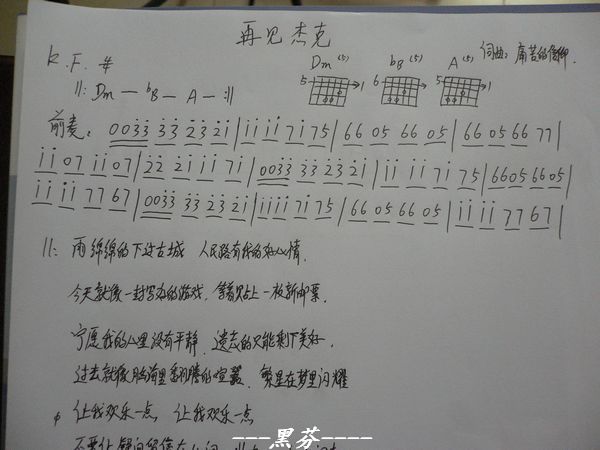 再见杰克
K. F. #
Dm (5) bB (5) A (5) 词曲：痛苦的信仰.
5 1 6 1 5 1
||: Dm — bB — A — :||
前奏： 0033 33 23 21 | 11 11 71 75 | 66 05 66 05 | 66 05 66 77 |
11 07 11 07 | 22 21 11 71 | 0033 33 23 21 | 11 11 71 75 | 6605 6605 |
11 11 77 67 | 0033 33 23 21 | 1111 71 75 | 66 05 66 05 | 11 11 77 67 |
||: 雨绵绵的下过古城 人民路有我的好心情.
今天就像一封写好的游戏, 等着贴上一枚新邮票.
宁愿我的心里没有平静, 遗忘的只能剩下美好.
过去就像脑海里翻腾的喧嚣, 繁星在梦里闪耀
φ 让我欢乐一点, 让我欢乐一点
不要让
---黑芬----